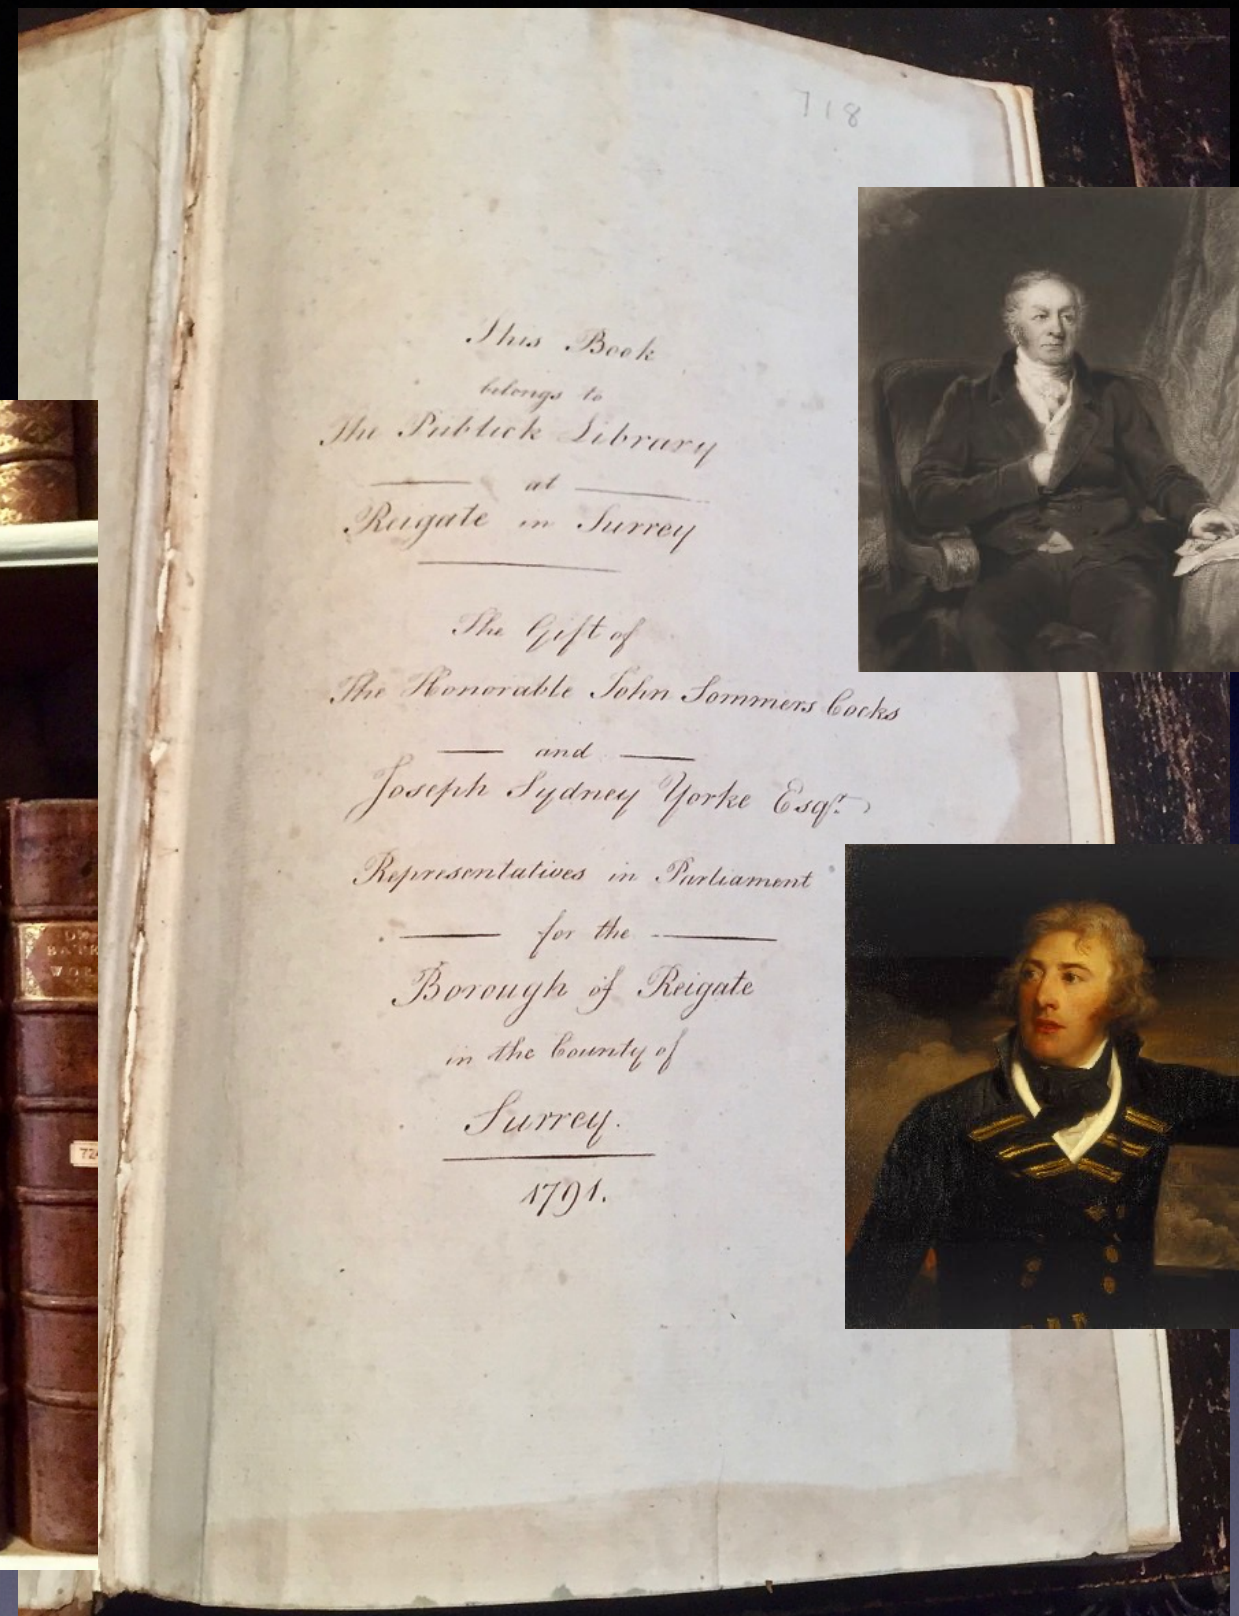 718
This Book
belongs to
The Publick Library
at
Reigate in Surrey
The Gift of
The Honorable John Sommers Cocks
and
Joseph Sydney Yorke Esqr.
Representatives in Parliament
for the
Borough of Reigate
in the County of
Surrey.
1791.
72